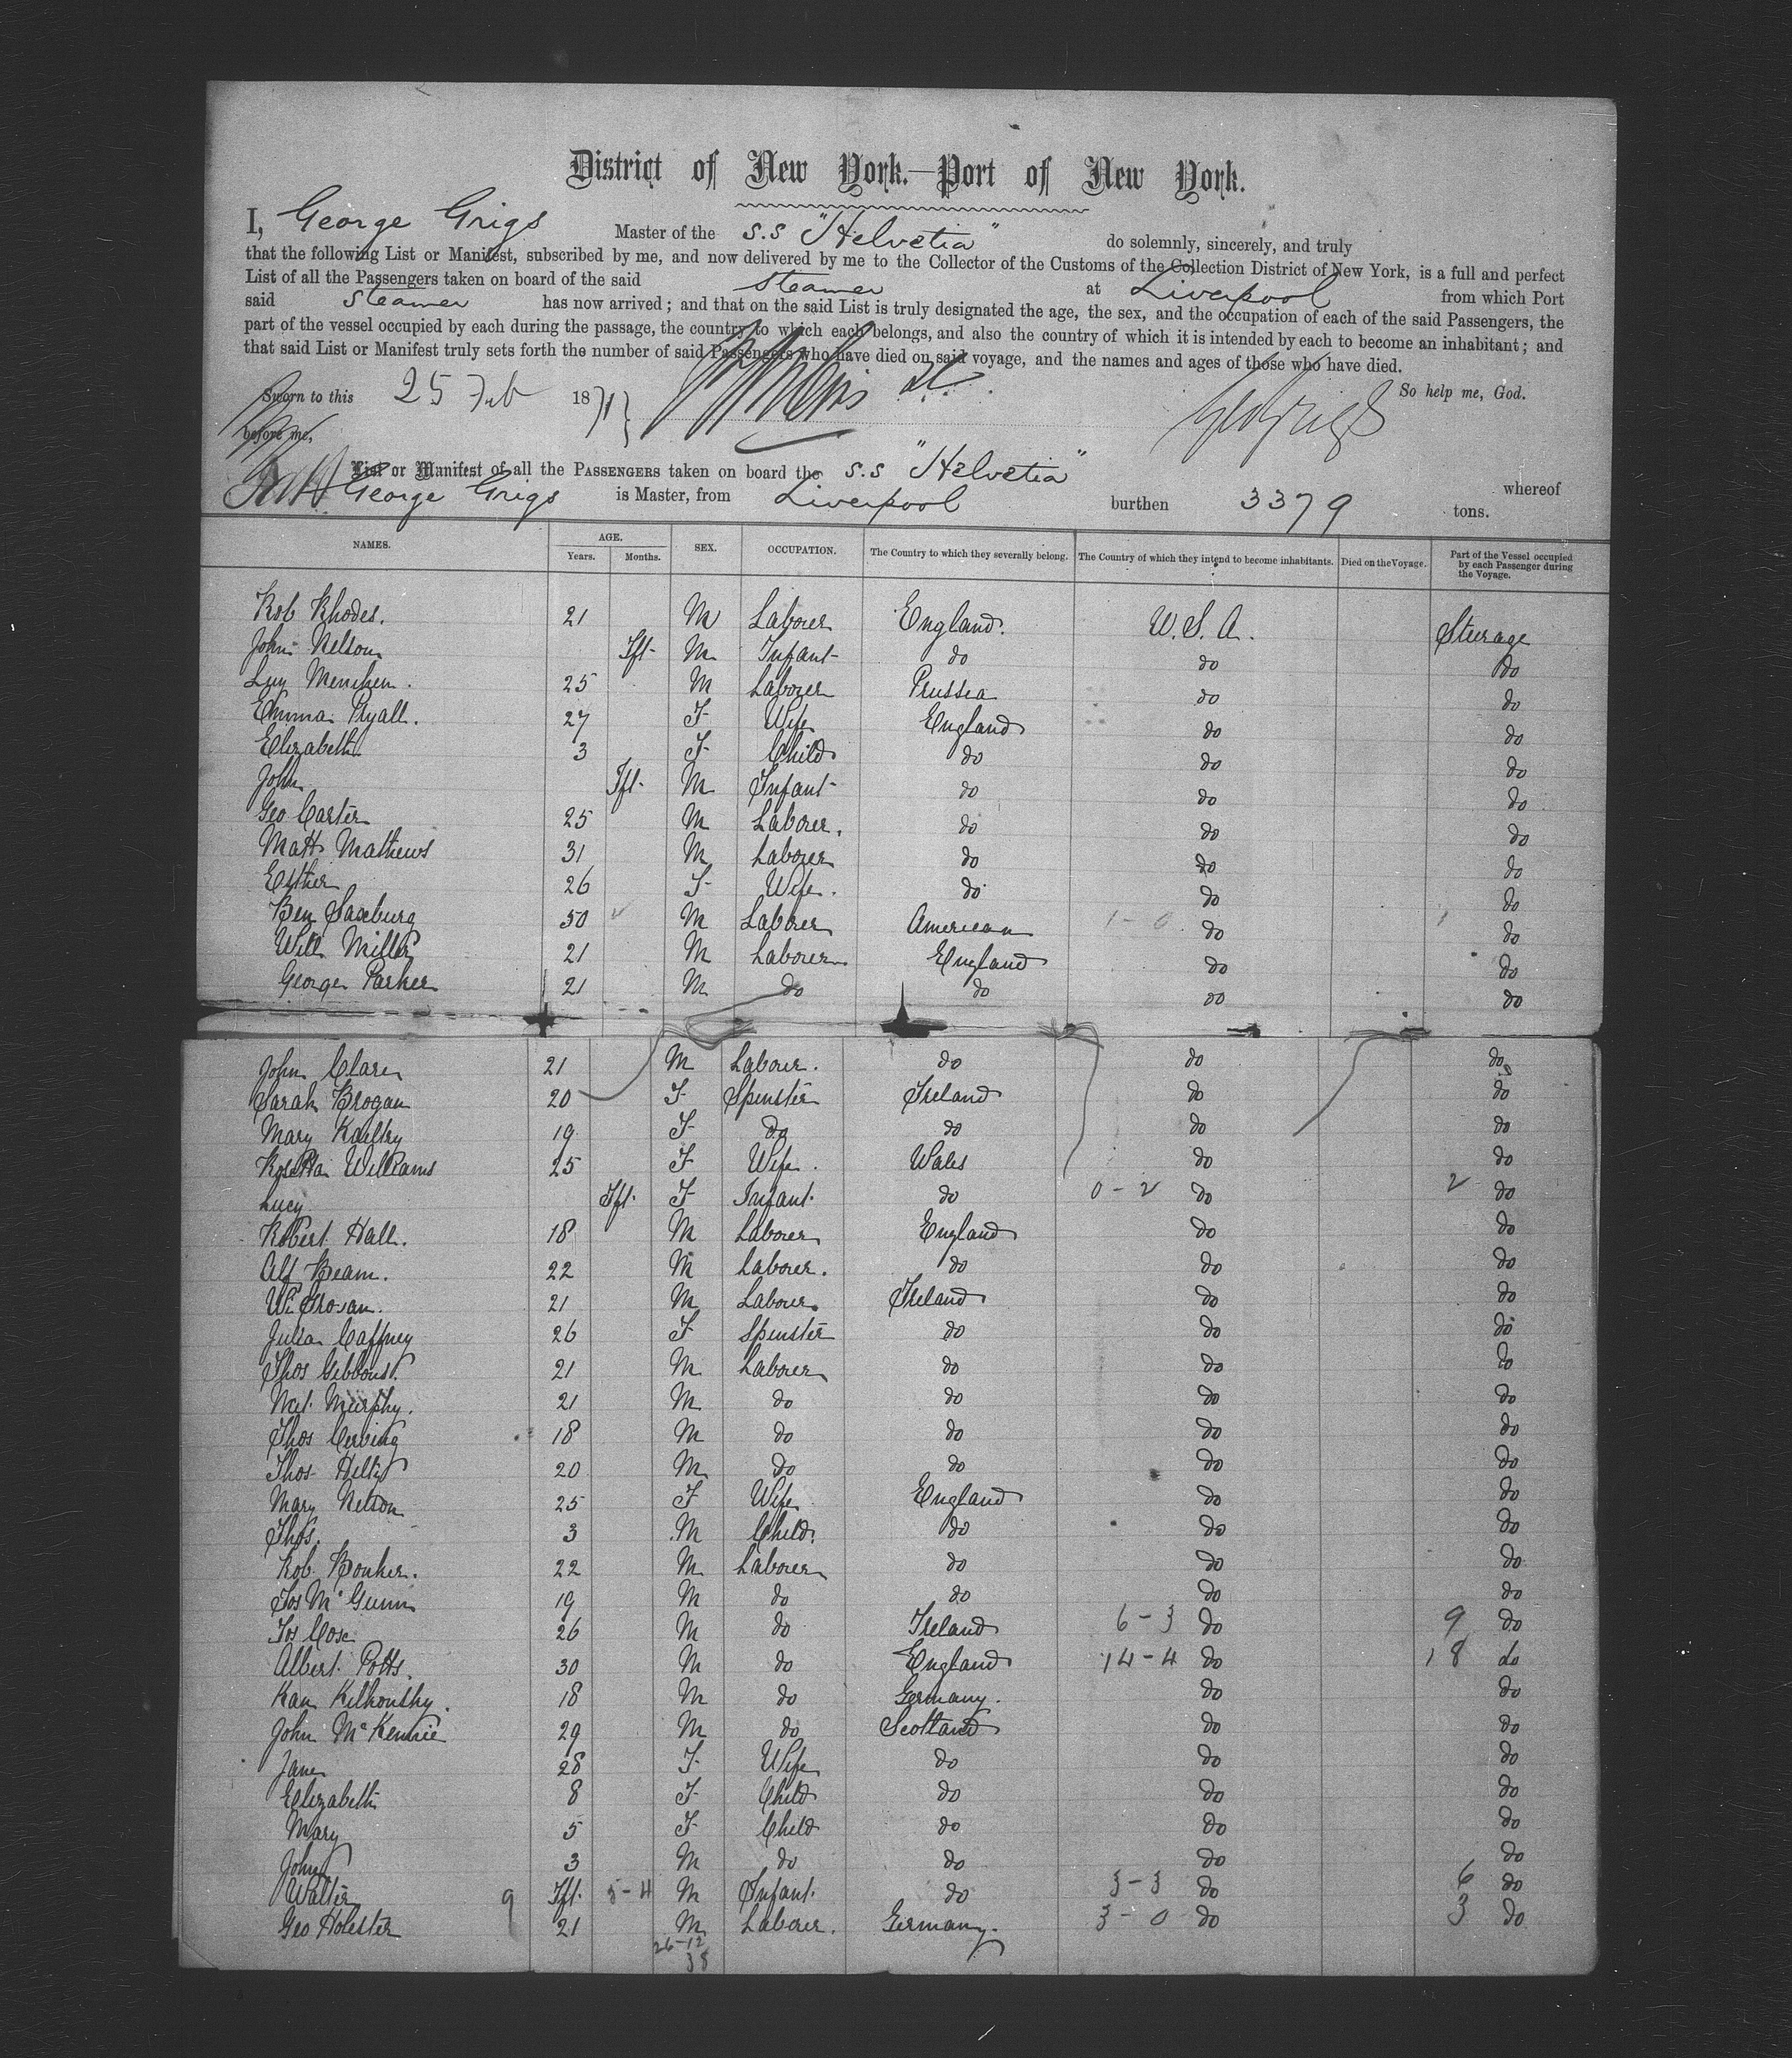 District of New York.—Port of New York.
I, George Grigs Master of the S.S "Helvetia" do solemnly, sincerely, and truly
that the following List or Manifest, subscribed by me, and now delivered by me to the Collector of the Customs of the Collection District of New York, is a full and perfect
List of all the Passengers taken on board of the said Steamer at Liverpool from which Port
said Steamer has now arrived; and that on the said List is truly designated the age, the sex, and the occupation of each of the said Passengers, the
part of the vessel occupied by each during the passage, the country to which each belongs, and also the country of which it is intended by each to become an inhabitant; and
that said List or Manifest truly sets forth the number of said Passengers who have died on said voyage, and the names and ages of those who have died.
Sworn to this 25 Feb 1871 So help me, God.
before me, Geo Grigs
List or Manifest of all the PASSENGERS taken on board the S.S "Helvetia" whereof
George Grigs is Master, from Liverpool burthen 3379 tons.
NAMES. AGE. Years. Months. SEX. OCCUPATION. The Country to which they severally belong. The Country of which they intend to become inhabitants. Died on the Voyage. Part of the Vessel occupied by each Passenger during the Voyage.
Rob Rhodes. 21 M Laborer England. U.S.A. Steerage
John Nelson Ift. M Infant do do do
25 M Laborer Prussia do do
Emma Ryall. 27 F Wife England do do
Elizabeth 3 F Child do do do
John Ift. M Infant do do do
Geo Carter 25 M Laborer. do do do
Matt Mathews 31 M Laborer do do do
Esther 26 F Wife. do do do
Ben Saxeburg 50 M Laborer American 1-0 do 1 do
Will Miller 21 M Laborer England do do
George Parker 21 M do do do do
John Clare 21 M Laborer. do do do
Sarah Brogan 20 F Spinster Ireland do do
Mary 19 F do do do do
Rosetta Williams 25 F Wife. Wales do do
Lucy Ift. F Infant. do 0-2 do 2 do
Robert Hall. 18 M Laborer England do do
Alf Beam. 22 M Laborer. do do do
21 M Laborer Ireland do do
Julia Caffney 26 F Spinster do do do
Thos Gibbons. 21 M Laborer do do do
Mat. Murphy. 21 M do do do do
Thos 18 M do do do do
Thos 20 M do do do do
Mary Nelson 25 F Wife England do do
Thos. 3 M Child. do do do
Rob. Bonker. 22 M Laborer do do do
Jos McGunn 19 M do do do do
Jos Cose 26 M do Ireland 6-3 do 9 do
Albert Potts. 30 M do England 14-4 do 18 do
18 M do Germany. do do
John McKenzie 29 M do Scotland do do
Jane 28 F Wife do do do
Elizabeth 8 F Child do do do
Mary 5 F Child do do do
John 3 M do do do do
Walter 9 Ift. 5-4 M Infant. do 3-3 do 6 do
Geo Holester 21 M Laborer. Germany. 3-0 do 3 do
26-12
38